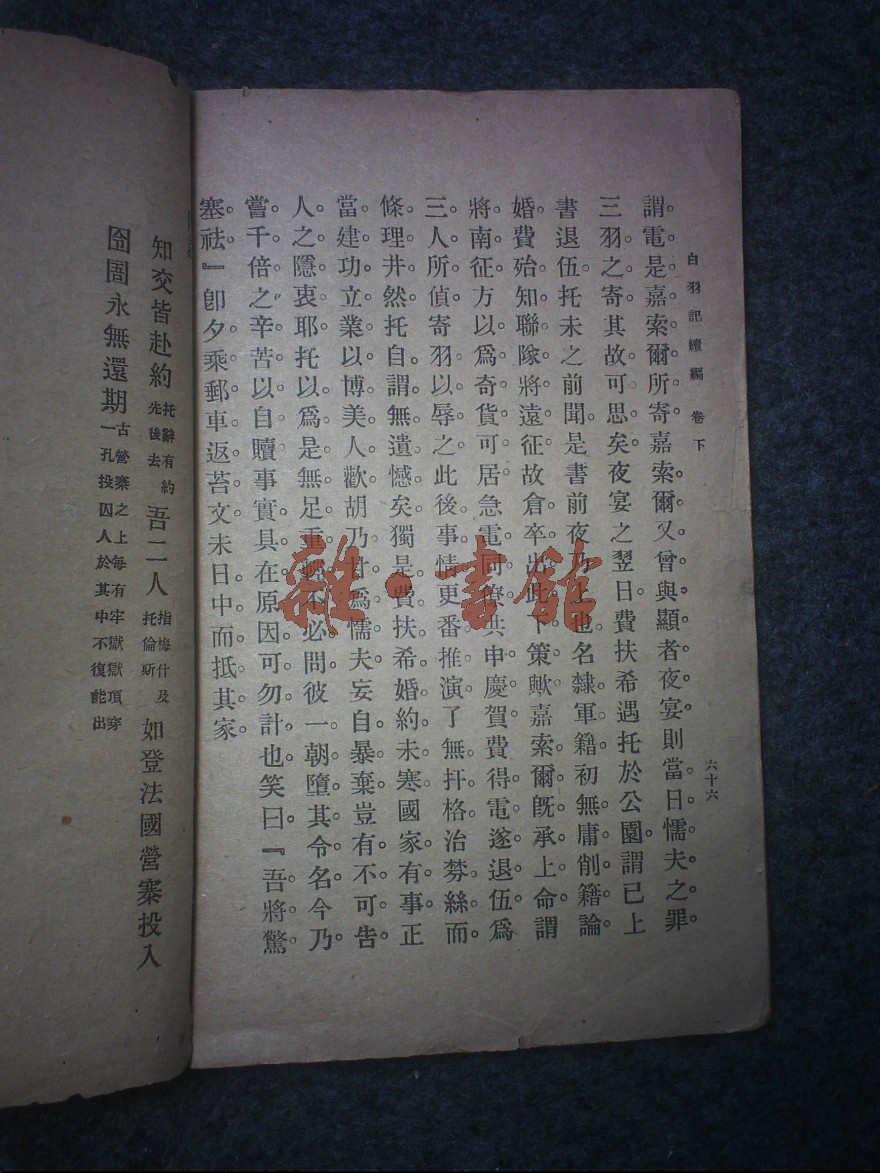 白羽記續編 卷下
六十六
謂。電是嘉索爾所寄嘉索爾。又曾與顯者夜宴則當日懦夫之罪。
三羽之寄。其故可思矣。夜宴之翌日。費扶希遇托於公園。謂已上
書退伍。托未之前聞。是書前夜乃上也。名隸軍籍。初無庸削籍論
婚。費殆知聯隊將遠征。故倉卒出此下策歟。嘉索爾旣承上命。謂
將南征。方以爲奇貨可居。急電同僚共申慶賀。費得電。遂退伍。爲
三人所偵。寄羽以辱之。此後事情更番推演。了無扞格。治棼絲而
條理井然。托自謂無遺憾矣。獨是費扶希婚約未寒。國家有事。正
當建功立業以博美人歡。胡乃甘爲懦夫妄自暴棄。豈有不可告
人之隱衷耶。托以爲是無足重輕。不必問。彼一朝墮其令名。今乃
嘗千倍之辛苦以自贖。事實具在。原因可勿計也。笑曰。『吾將驚
塞祛。』卽夕乘郵車返苔文。未日中而抵其家。
知交皆赴約托辭有約先後去吾二人指梅什及托倫斯如登法國營寨投入
囹圄永無還期古營寨之上每有牢獄獄頂穿一孔投囚人於其中不復能出
雜·書館